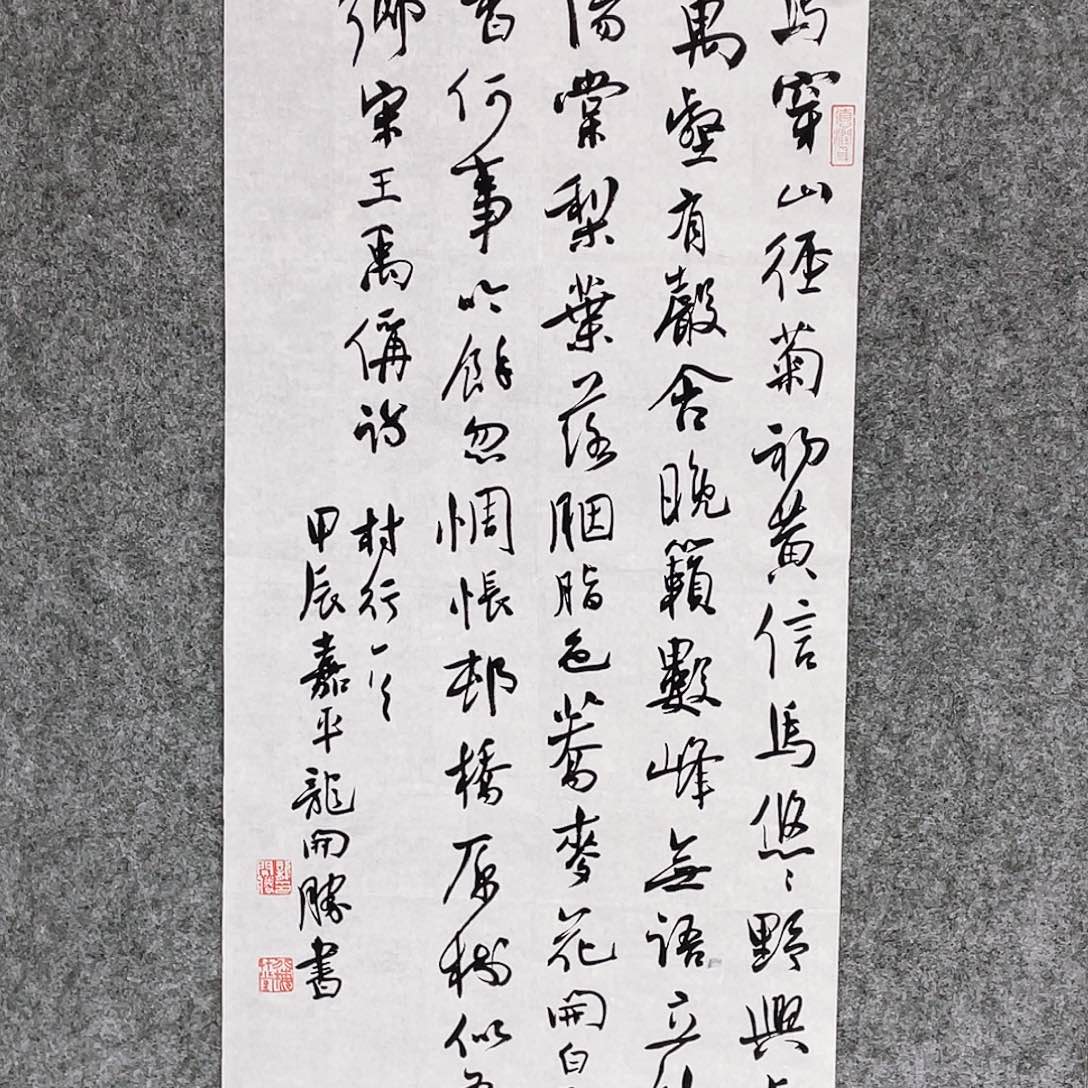 馬穿山徑菊初黄信馬悠〻野興
萬壑有聲含晚籟數峰無語立
陽棠梨葉落胭脂色蕎麥花開白
香何事吟餘忽惆悵邨橋原樹似吾
鄉宋王禹偁詩 村行一首
甲辰嘉平龍開勝書